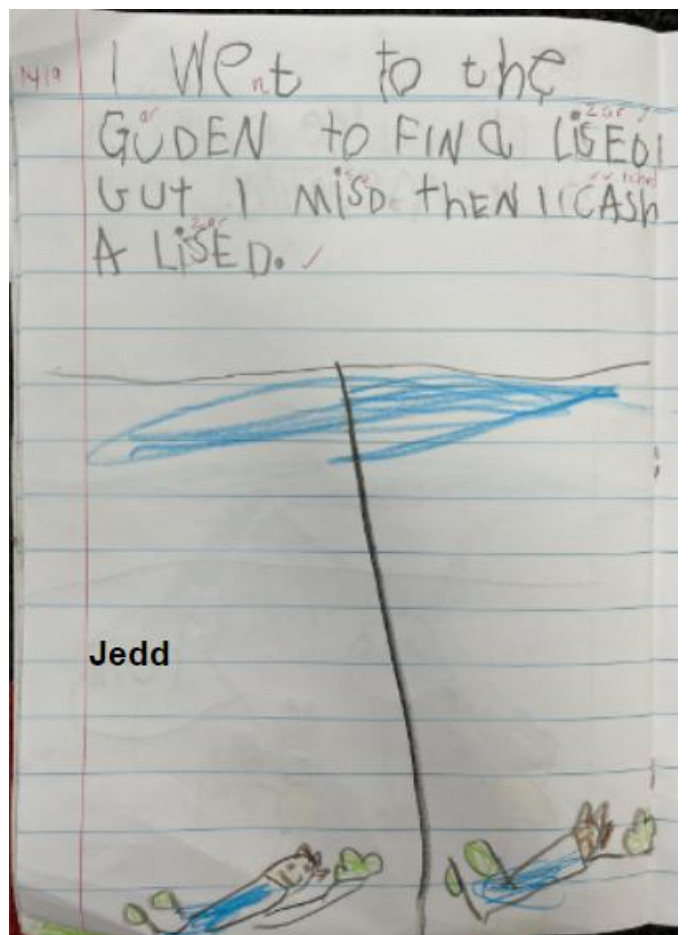 14/9 I WEnt to the
GUDEN to FIN a LiSED!
ar zar
BUt I MiSD. thEN I CASh
A LiSED. ✓
zar
Jedd